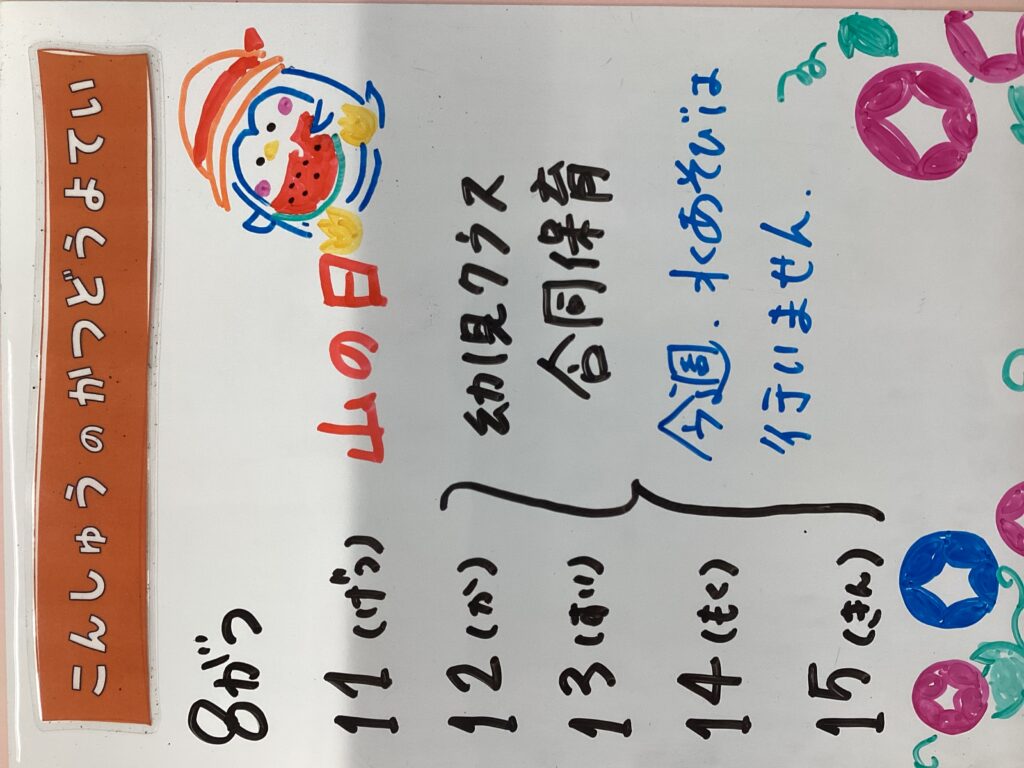 こんしゅうのかつどうよてい
8がつ
11(げつ) 山の日
12(か)
13(すい)
14(もく)
15(きん)
幼児クラス
合同保育
今週、水あそびは
行いません.